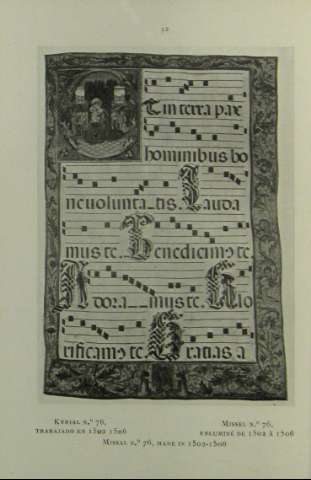 32
Et in terra pax
hominibus bo
nevolunta_tis. Lauda
mus te. Benedicim⁹ te
Adora__mus te. Glo
rificam⁹ te. Gratias a
Kyrial n.º 76,
trabajado en 1502 1506
Missel n.º 76,
enluminé de 1502 à 1506
Missal n.º 76, made in 1502-1506